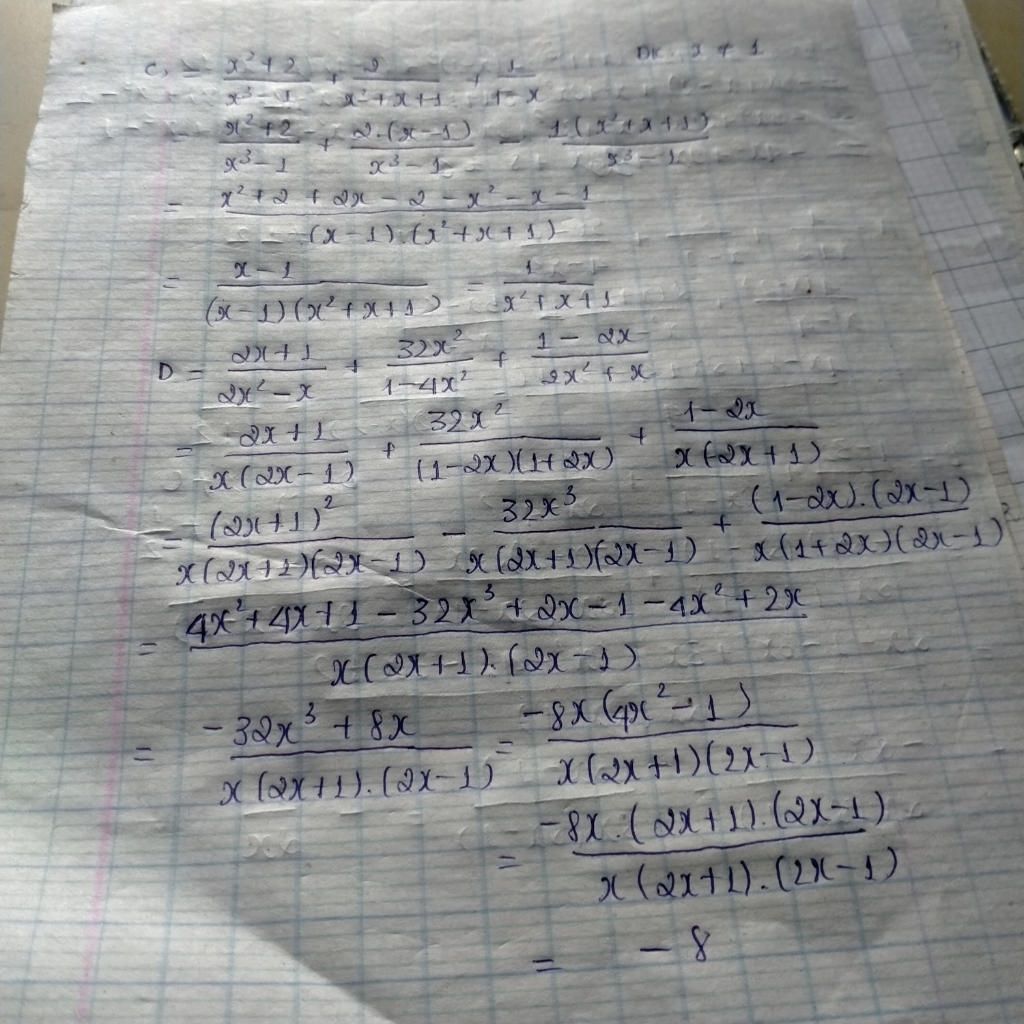 C, = (x² + 2)/(x³ - 1) + 2/(x² + x + 1) + 1/(1 - x) ĐK: x ≠ 1
= (x² + 2)/(x³ - 1) + 2.(x - 1)/(x³ - 1) - 1(x² + x + 1)/(x³ - 1)
= (x² + 2 + 2x - 2 - x² - x - 1)/((x - 1).(x² + x + 1))
= (x - 1)/((x - 1)(x² + x + 1)) = 1/(x² + x + 1)
D = (2x + 1)/(2x² - x) + 32x²/(1 - 4x²) + (1 - 2x)/(2x² + x)
= (2x + 1)/(x(2x - 1)) + 32x²/((1 - 2x)(1 + 2x)) + (1 - 2x)/(x(2x + 1))
= (2x + 1)²/(x(2x + 1)(2x - 1)) - 32x³/(x(2x + 1)(2x - 1)) + (1 - 2x).(2x - 1)/(x(1 + 2x)(2x - 1))
= (4x² + 4x + 1 - 32x³ + 2x - 1 - 4x² + 2x)/(x(2x + 1).(2x - 1))
= (-32x³ + 8x)/(x(2x + 1).(2x - 1)) = -8x(4x² - 1)/(x(2x + 1)(2x - 1))
= -8x.(2x + 1).(2x - 1)/(x(2x + 1).(2x - 1))
= -8